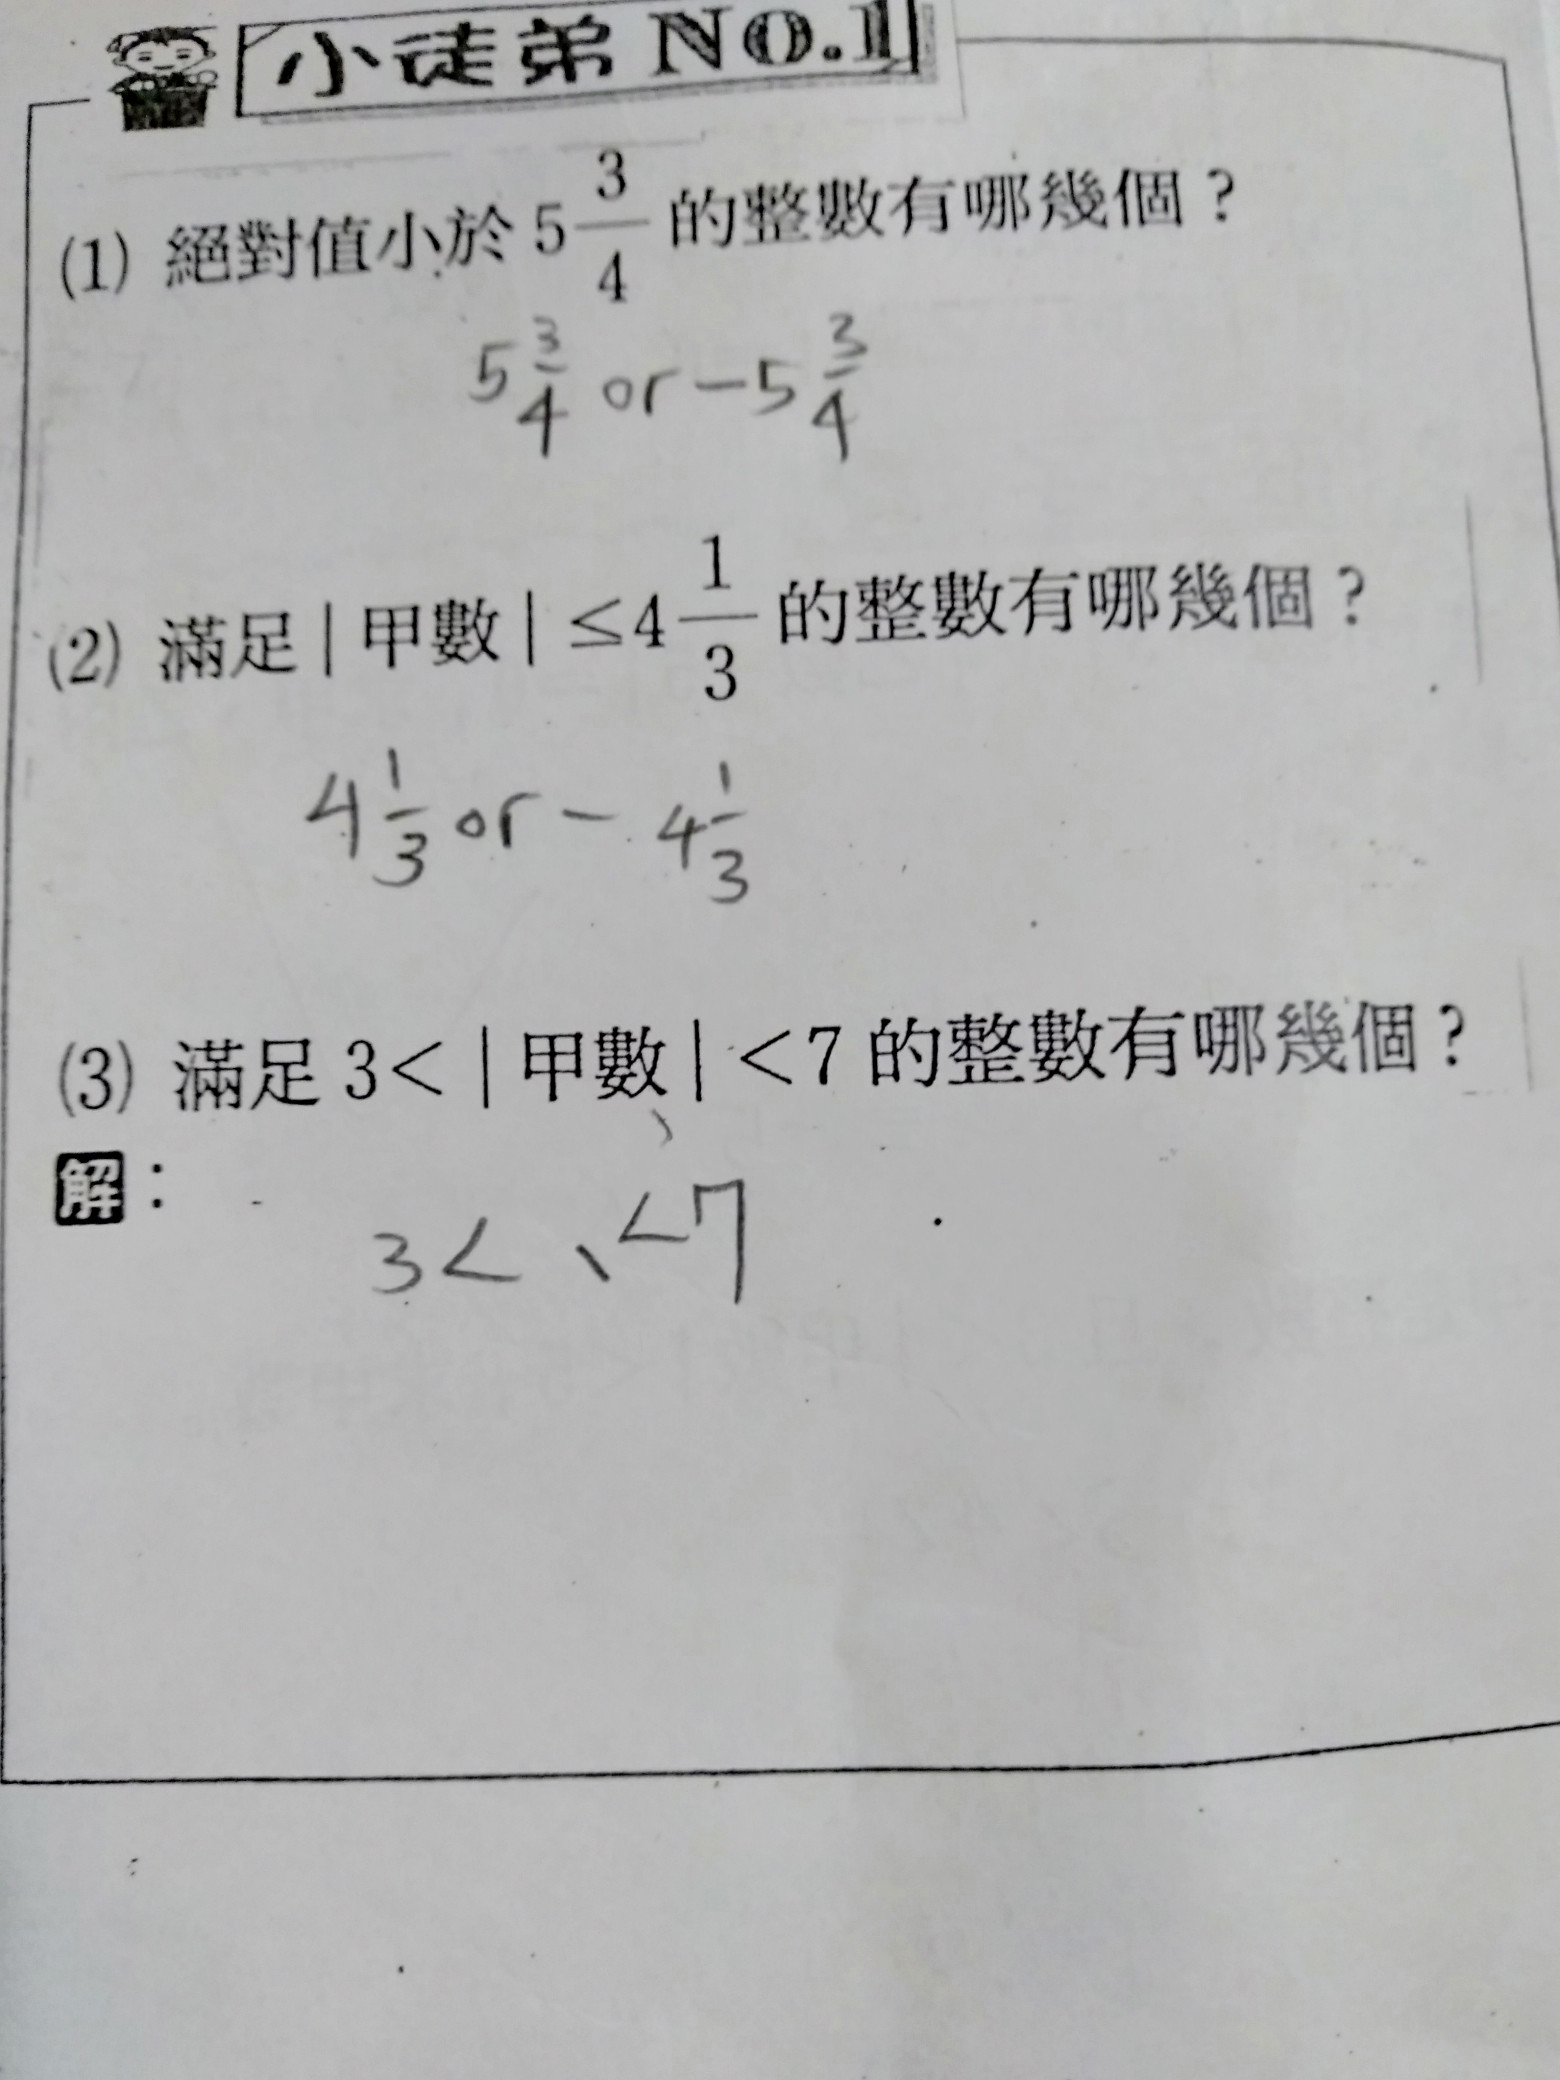 小徒弟 NO.1
(1) 絕對值小於 5 3/4 的整數有哪幾個？
5 3/4 or −5 3/4
(2) 滿足 | 甲數 | ≤4 1/3 的整數有哪幾個？
4 1/3 or − 4 1/3
(3) 滿足 3< | 甲數 | <7 的整數有哪幾個？
解：
3< 、<7